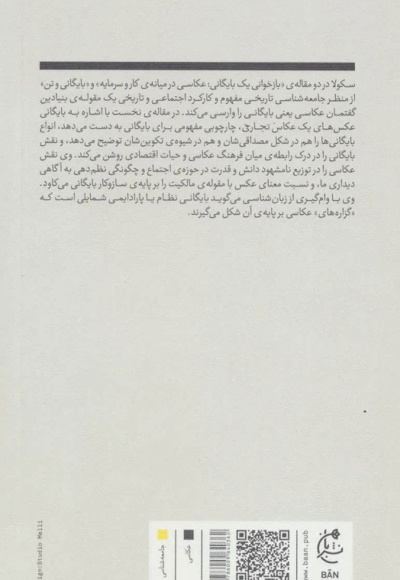 سکولا در دو مقاله‌ی «بازخوانی یک بایگانی: عکاسی در میانه‌ی کار و سرمایه» و «بایگانی و تن»
از منظر جامعه‌شناسی تاریخی مفهوم و کارکرد اجتماعی و تاریخی یک مقوله‌ی بنیادین
گفتمان عکاسی یعنی بایگانی را وارسی می‌کند. در مقاله‌ی نخست با اشاره به بایگانی
عکس‌های یک عکاس تجاری، چارچوبی مفهومی برای بایگانی به دست می‌دهد، انواع
بایگانی‌ها را هم در شکل مصداقی‌شان و هم در شیوه‌ی تکوین‌شان توضیح می‌دهد، و نقش
بایگانی را در درک رابطه‌ی میان فرهنگ عکاسی و حیات اقتصادی روشن می‌کند. وی نقش
عکاسی را در توزیع نامشهود دانش و قدرت در حوزه‌ی اجتماع و چگونگی نظم‌دهی به آگاهی
دیداری ما، و نسبت معنای عکس با مقوله‌ی مالکیت را بر پایه‌ی سازوکار بایگانی می‌کاود.
وی با وام‌گیری از زبان‌شناسی می‌گوید بایگانی نظام یا پارادایمی شمایلی است که
«گزاره‌های» عکاسی بر پایه‌ی آن شکل می‌گیرند.
ign:Studio Melli
جامعه‌شناسی
عکاسی
www.baan.pub
نشر بان
BĀN